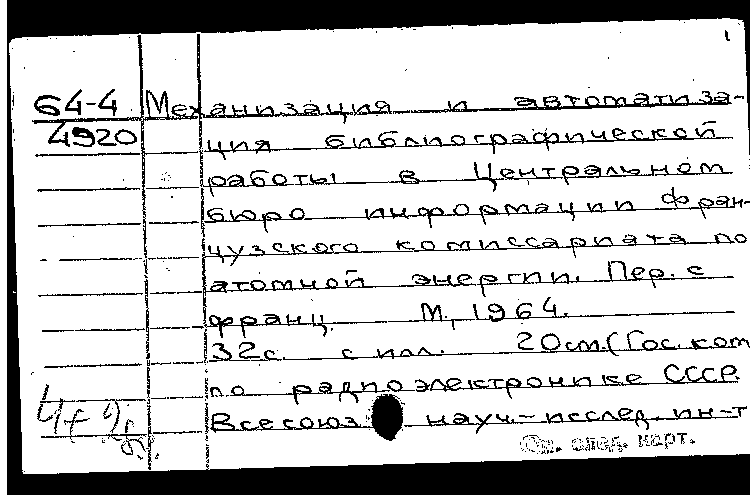 64-4 Механизация и автоматиза-
4920 ция библиографической
работы в Центральном
бюро информации Фран-
цузского комиссариата по
атомной энергии. Пер. с
франц. М., 1964.
32с. с илл. 20см. (Гос. ком
по радиоэлектронике СССР.
Всесоюз науч.-исслед. ин-т
См. след. карт.